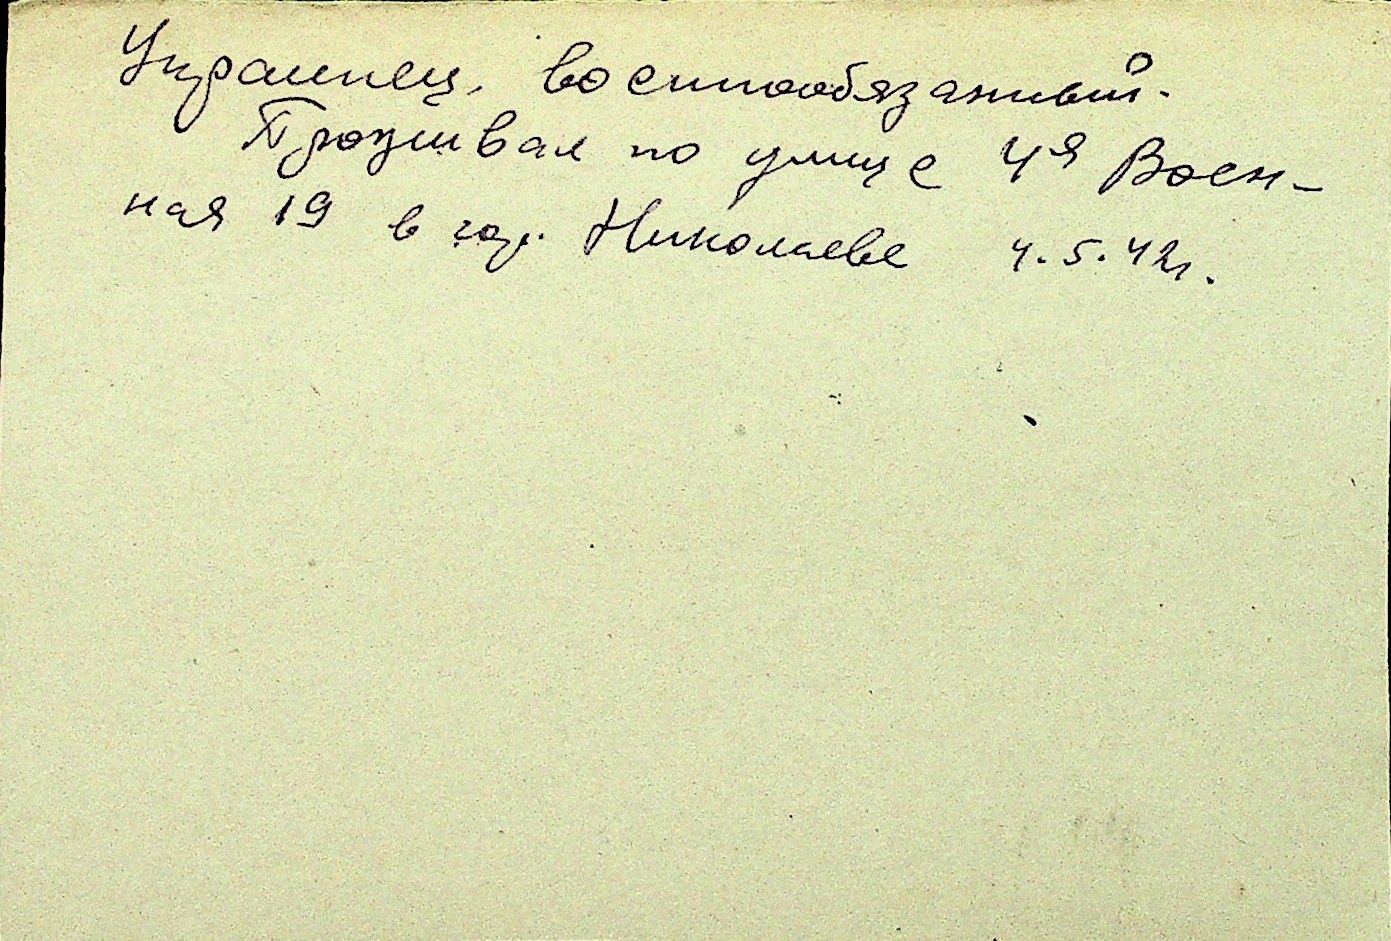 Украинец, военнообязанный.
Проживал по улице 4я Воен-
ная 19 в гор. Николаеве 4.5.42г.